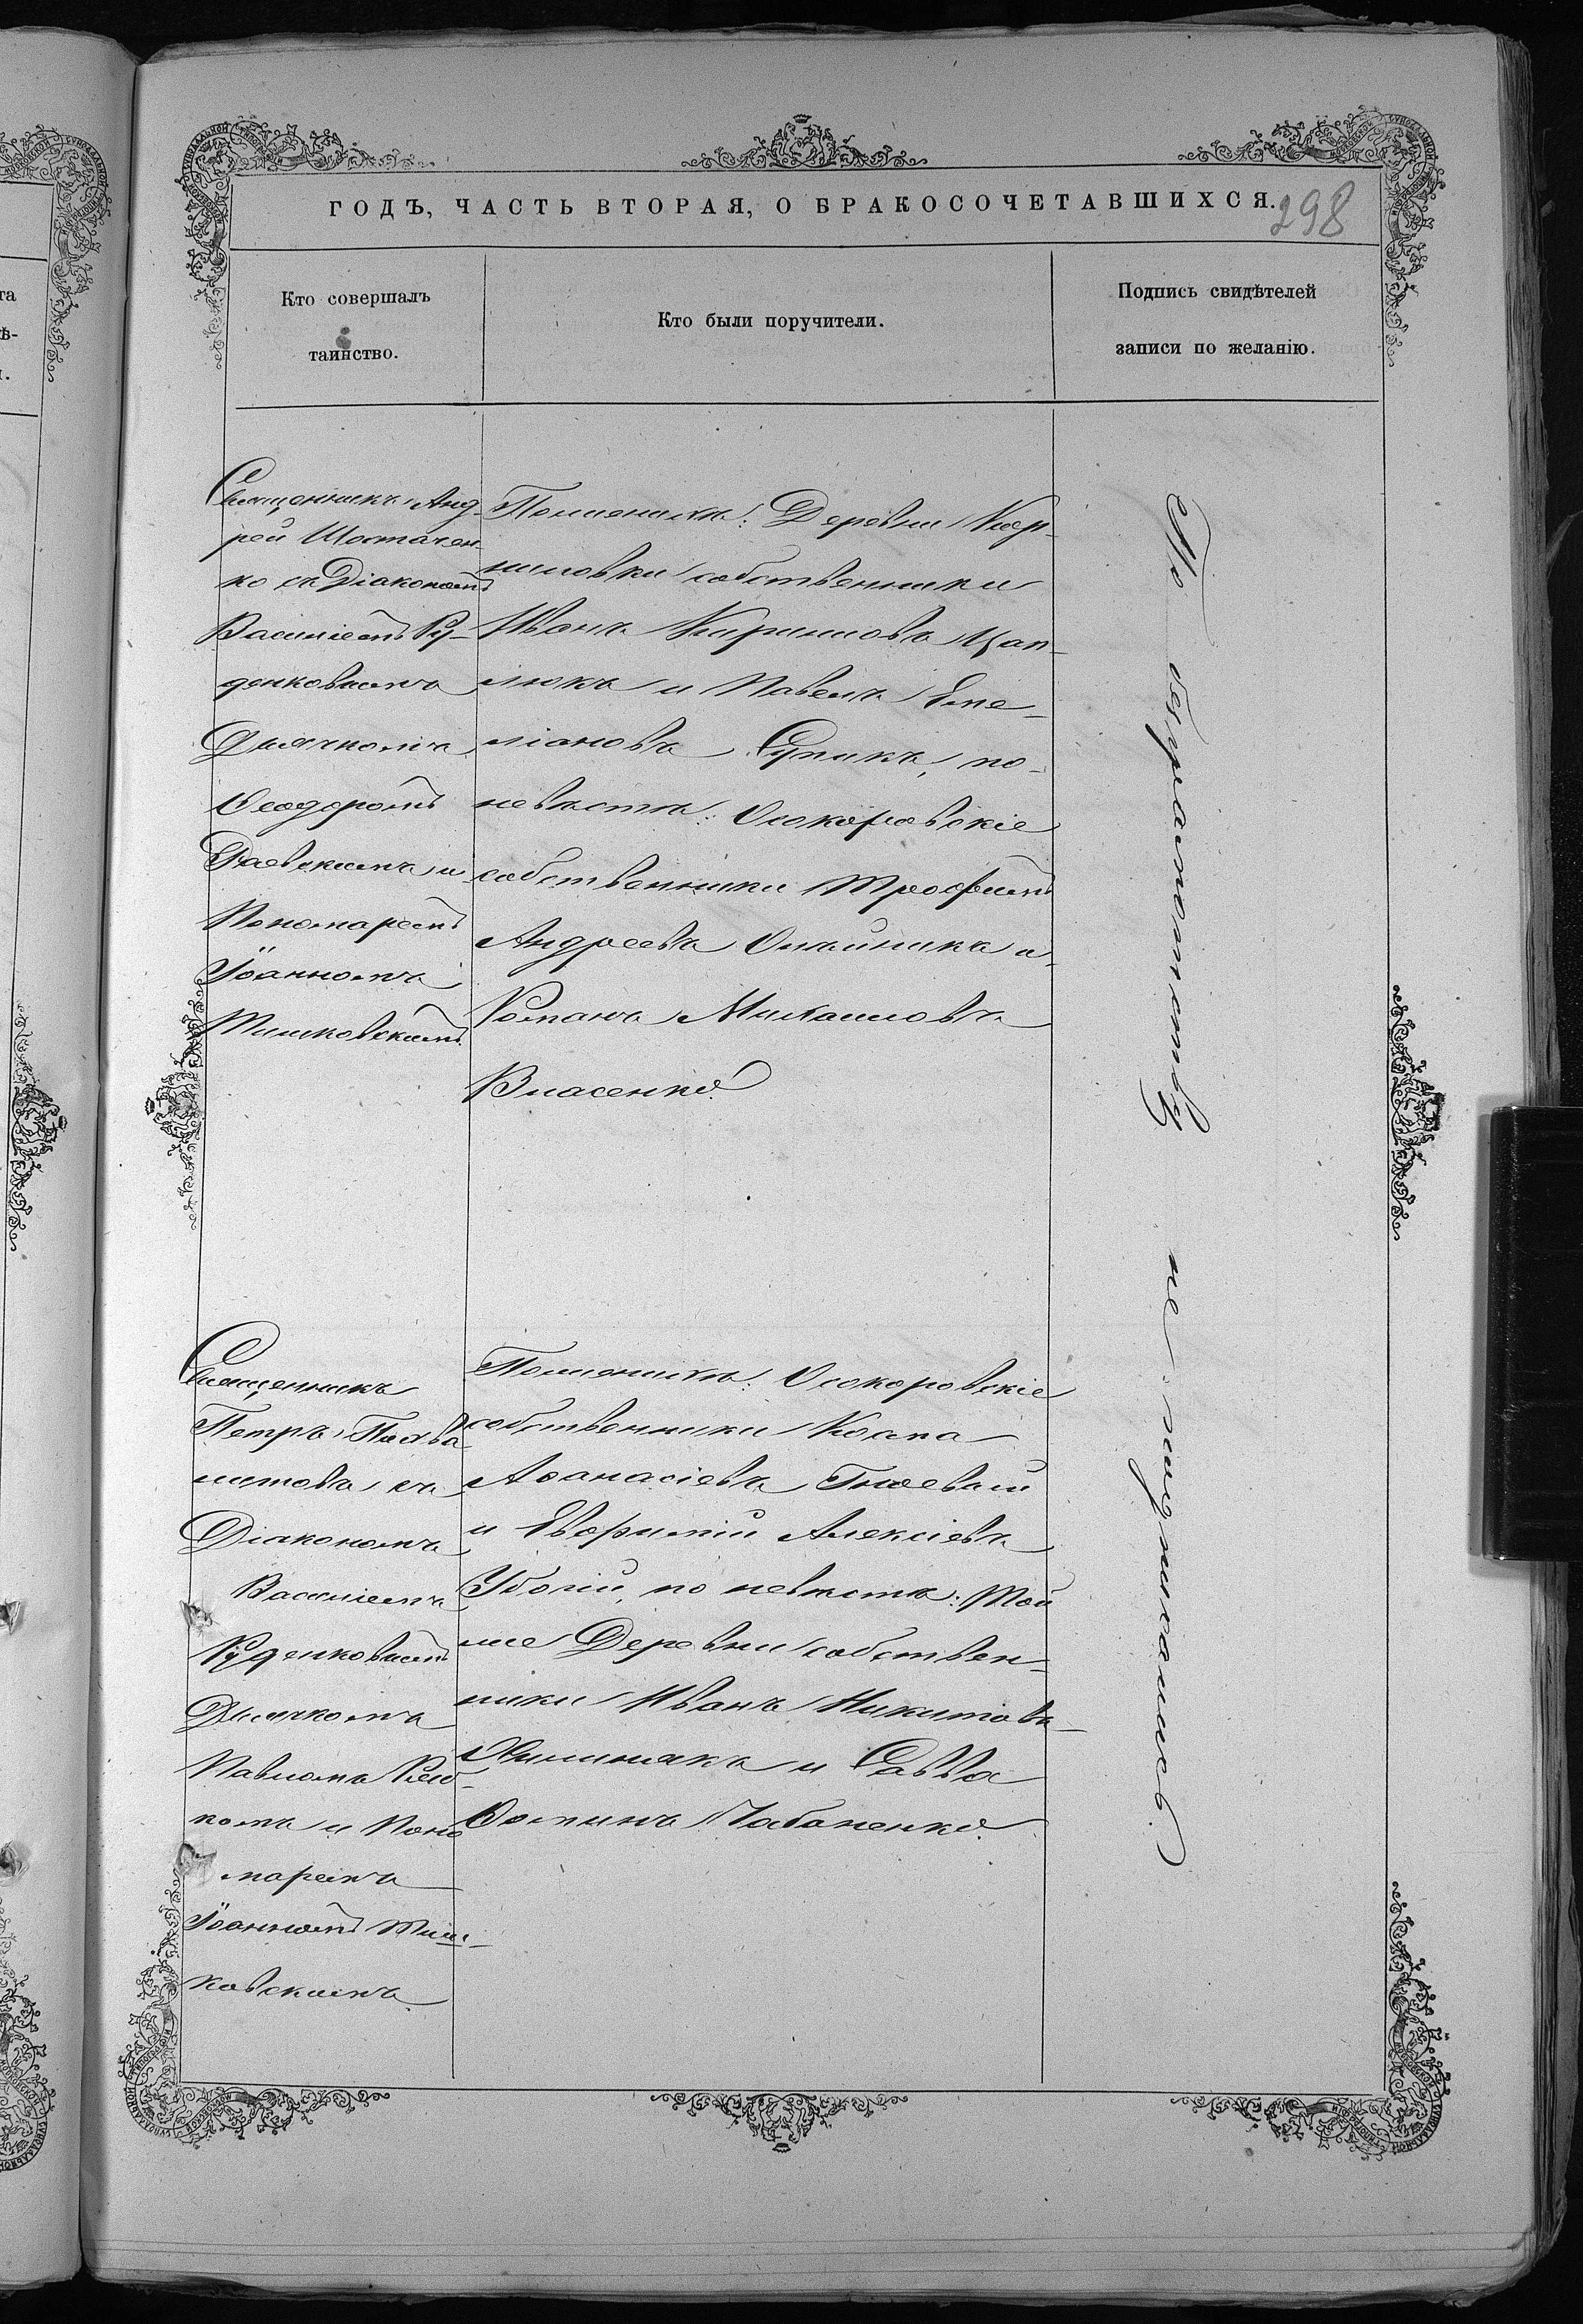 ГОДЪ, ЧАСТЬ ВТОРАЯ, О БРАКОСОЧЕТАВШИХСЯ.
298
Кто совершалъ
таинство.
Кто были поручители.
Подпись свидѣтелей
записи по желанію.
Священникъ Анд-
рей Шостачен-
ко съ Діакономъ
Василіемъ Ру-
денковымъ
Дьячкомъ
Ѳеодоромъ
Раевскимъ и
Пономаремъ
Іоанномъ
Тишковскимъ.
По женихѣ: Деревни
собственники
Иванъ Кириловъ Цап-
люкъ и Павелъ Еме-
ліановъ Супикъ, по
невѣстѣ: Осокоровскіе
собственники Трофимъ
Андреевъ Олейникъ и
Романъ Михаиловъ
Власенко.
По безграмотству не подписались.
Священникъ
Петръ
съ
Діакономъ
Василіемъ
Руденковымъ
Дьячкомъ
Павломъ
и Поно-
маремъ
Іоанномъ Тиш-
ковскимъ.
По женихѣ: Осокоровскіе
собственники Косма
Аѳанасіевъ Гноевый
и Евфимій Алексіевъ
Убогій, по невѣстѣ: той
же Деревни собствен-
ники Иванъ Никитовъ
и Савва
Фоминъ Чабаненко.